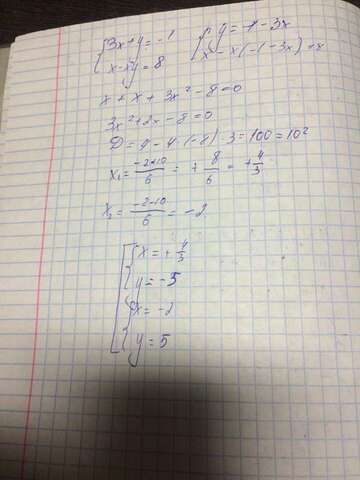 { 3x+y=-1 { y=-1-3x
{ x-xy=8 x-x(-1-3x)=8
x+x+3x²-8=0
3x²+2x-8=0
D=4-4·(-8)·3=100=10²
x₁=(-2+10)/6=+8/6=+4/3
x₂=(-2-10)/6=-2
[ { x=+4/3
{ y=-5
{ x=-2
{ y=5